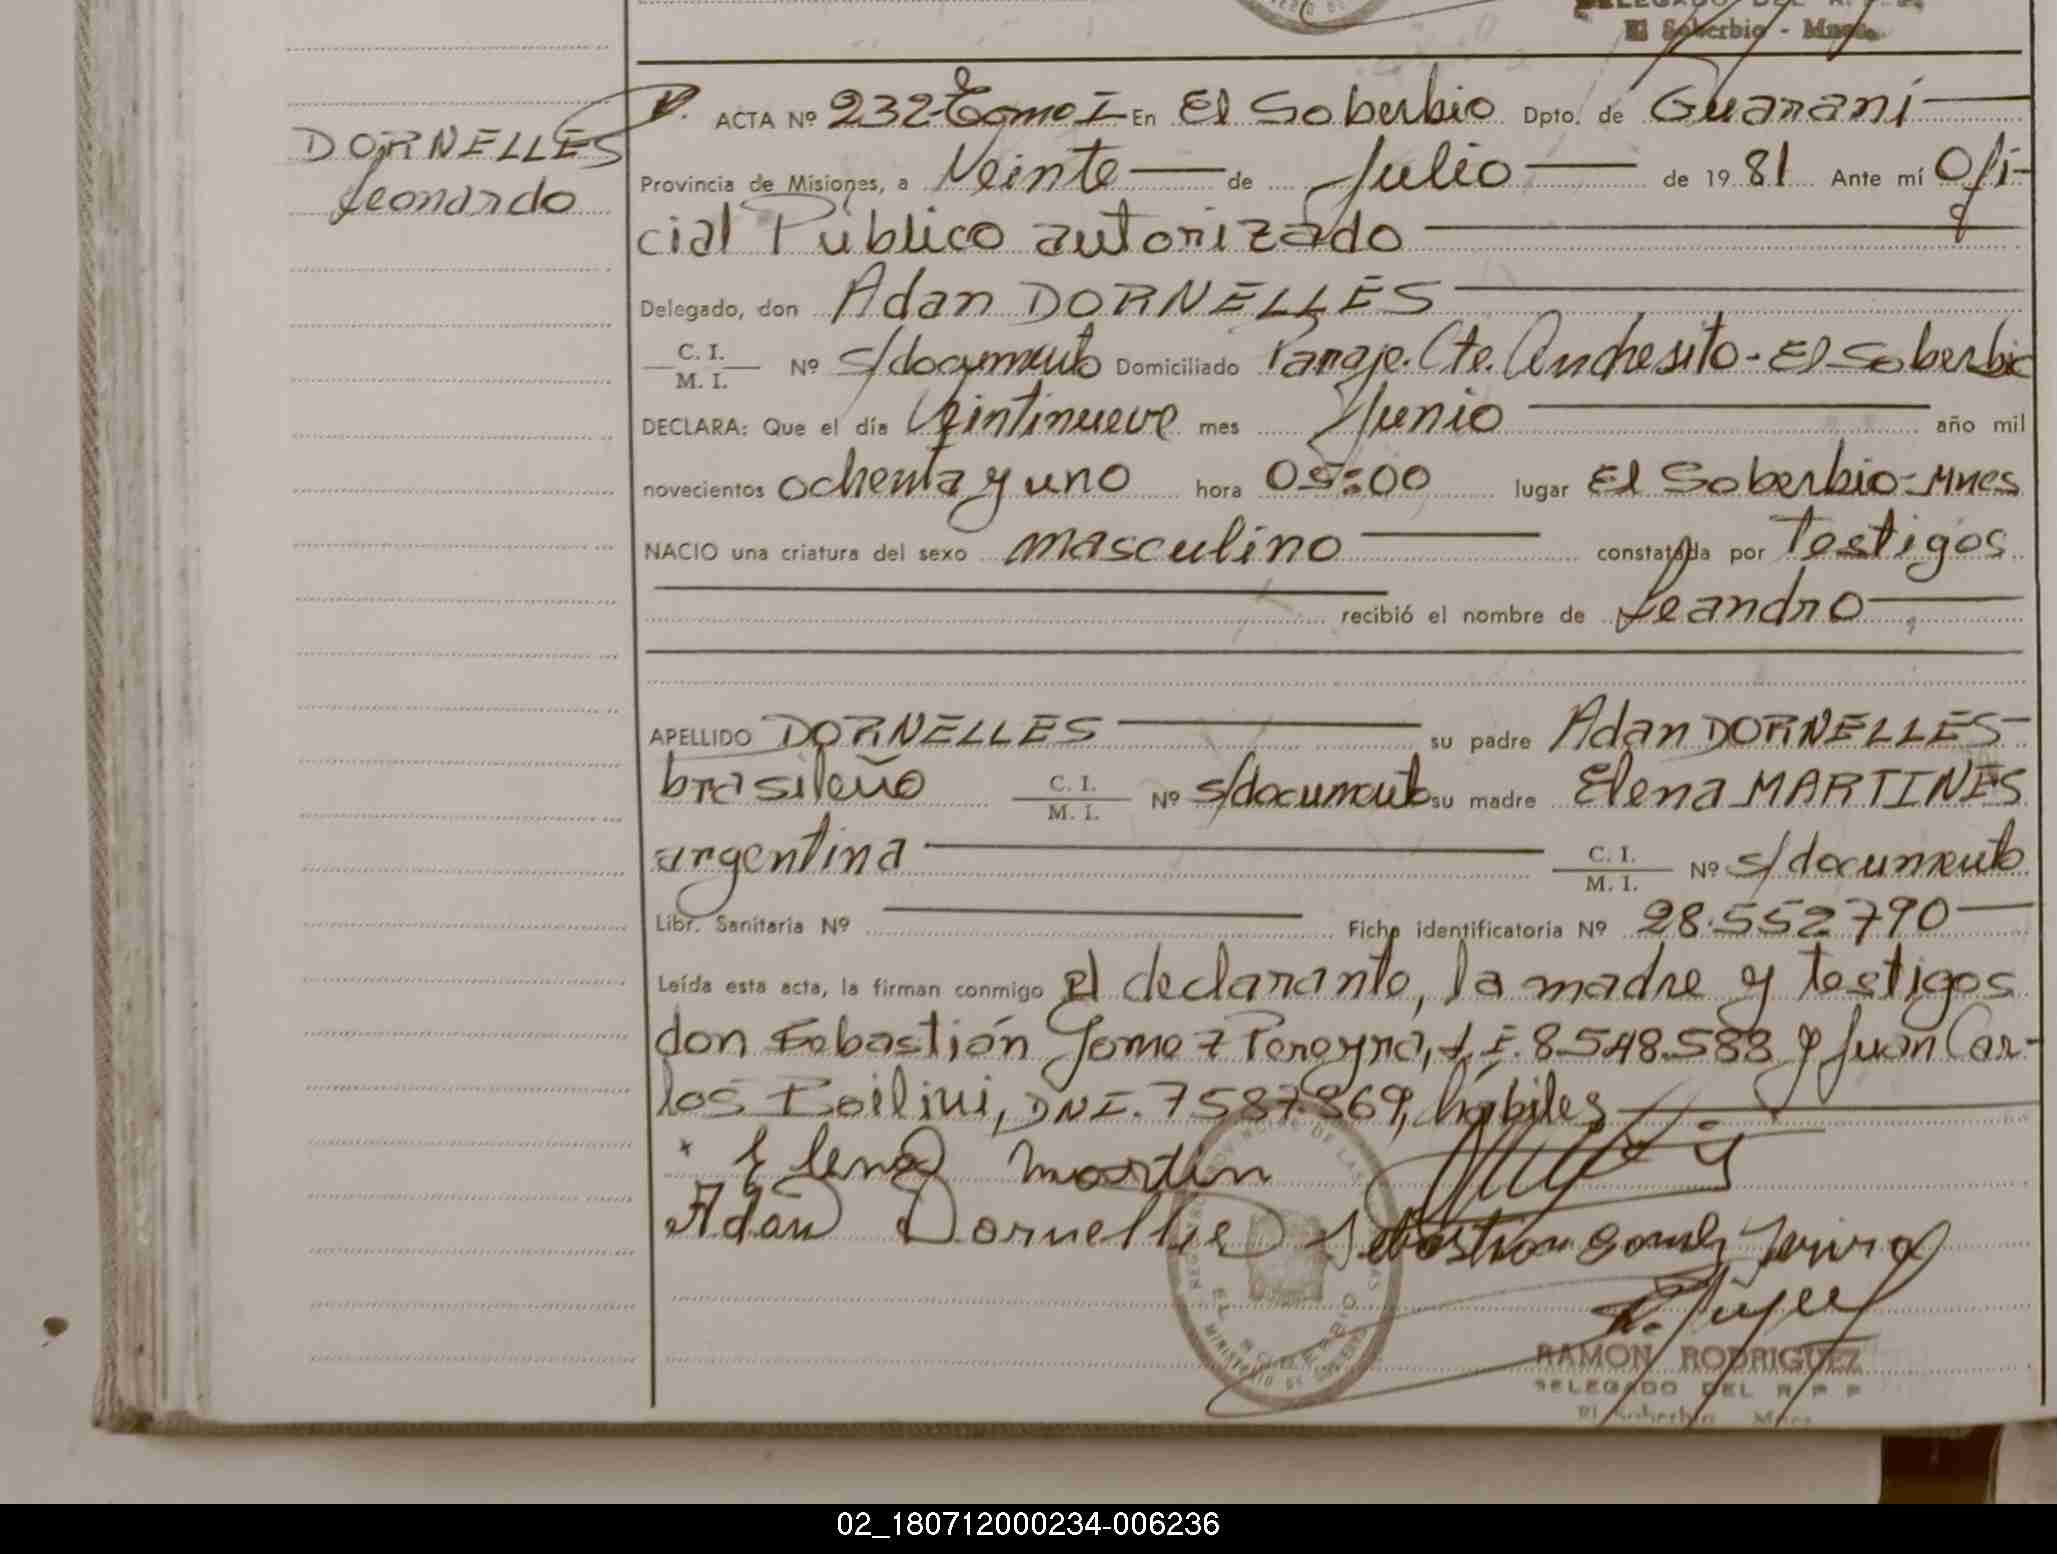 El Soberbio - Mnes.
DORNELLES
Leonardo
ACTA Nº 232-Tomo I En El Soberbio Dpto. de Guaraní
Provincia de Misiones, a Veinte de Julio de 1981 Ante mí Ofi-
cial Público autorizado
Delegado, don Adan DORNELLES
C. I.
M. I. Nº s/documento Domiciliado Paraje. Cte. Andresito - El Soberbio
DECLARA: Que el día Veintinueve mes Junio año mil
novecientos ochenta y uno hora 05:00 lugar El Soberbio-Mnes
NACIO una criatura del sexo masculino constatada por Testigos
recibió el nombre de Leandro
APELLIDO DORNELLES su padre Adan DORNELLES-
brasileño C. I. M. I. Nº s/documento su madre Elena MARTINES
argentina C. I. M. I. Nº s/documento
Libr. Sanitaria Nº Ficha identificatoria Nº 28.552790
Leída esta acta, la firman conmigo el declarante, la madre y testigos
don Sebastián Gomez Pereyra, L.E. 8.548.588 y Juan Car-
los, DNI. 7587869, hábiles
Elena martin
Adan Dornelles Sebastian Gomez
RAMON RODRIGUEZ
DELEGADO DEL R P P
El Soberbio Mnes
02_180712000234-006236